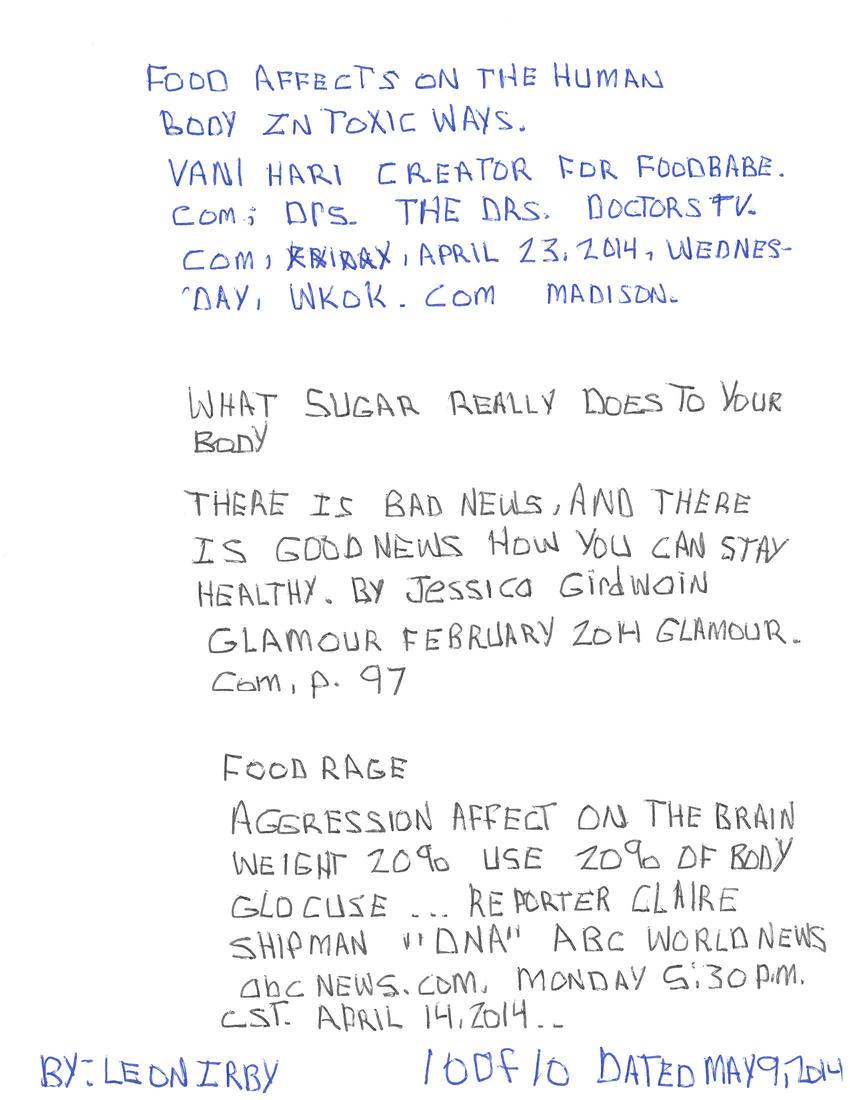 FOOD AFFECTS ON THE HUMAN
BODY IN TOXIC WAYS.
VANI HARI CREATOR FOR FOODBABE.
COM; DrS. THE DRS. DOCTORS TV.
COM, FRIDAY, APRIL 23, 2014, WEDNES-
DAY, WKOK. COM MADISON.
WHAT SUGAR REALLY DOES TO YOUR
BODY
THERE IS BAD NEWS, AND THERE
IS GOOD NEWS HOW YOU CAN STAY
HEALTHY. BY Jessica Girdwain
GLAMOUR FEBRUARY 2014 GLAMOUR.
Com, p. 97
FOOD RAGE
AGGRESSION AFFECT ON THE BRAIN
WEIGHT 20% USE 20% OF BODY
GLOCUSE ... REPORTER CLAIRE
SHIPMAN "DNA" ABC WORLD NEWS
abc NEWS.COM, MONDAY 5:30 P.M.
CST. APRIL 14, 2014..
BY: LEON IRBY 10 Of 10 DATED MAY 9, 2014